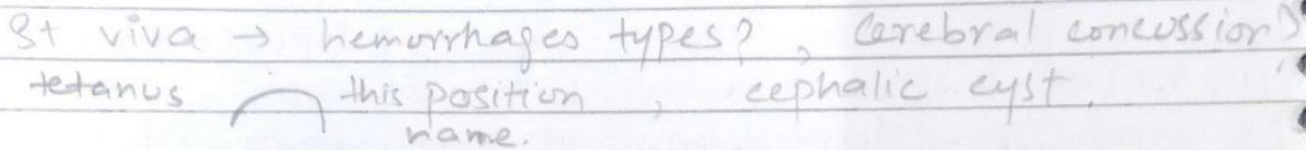 St viva → hemorrhages types? , Cerebral concussion?
tetanus this position , cephalic cyst.
name.